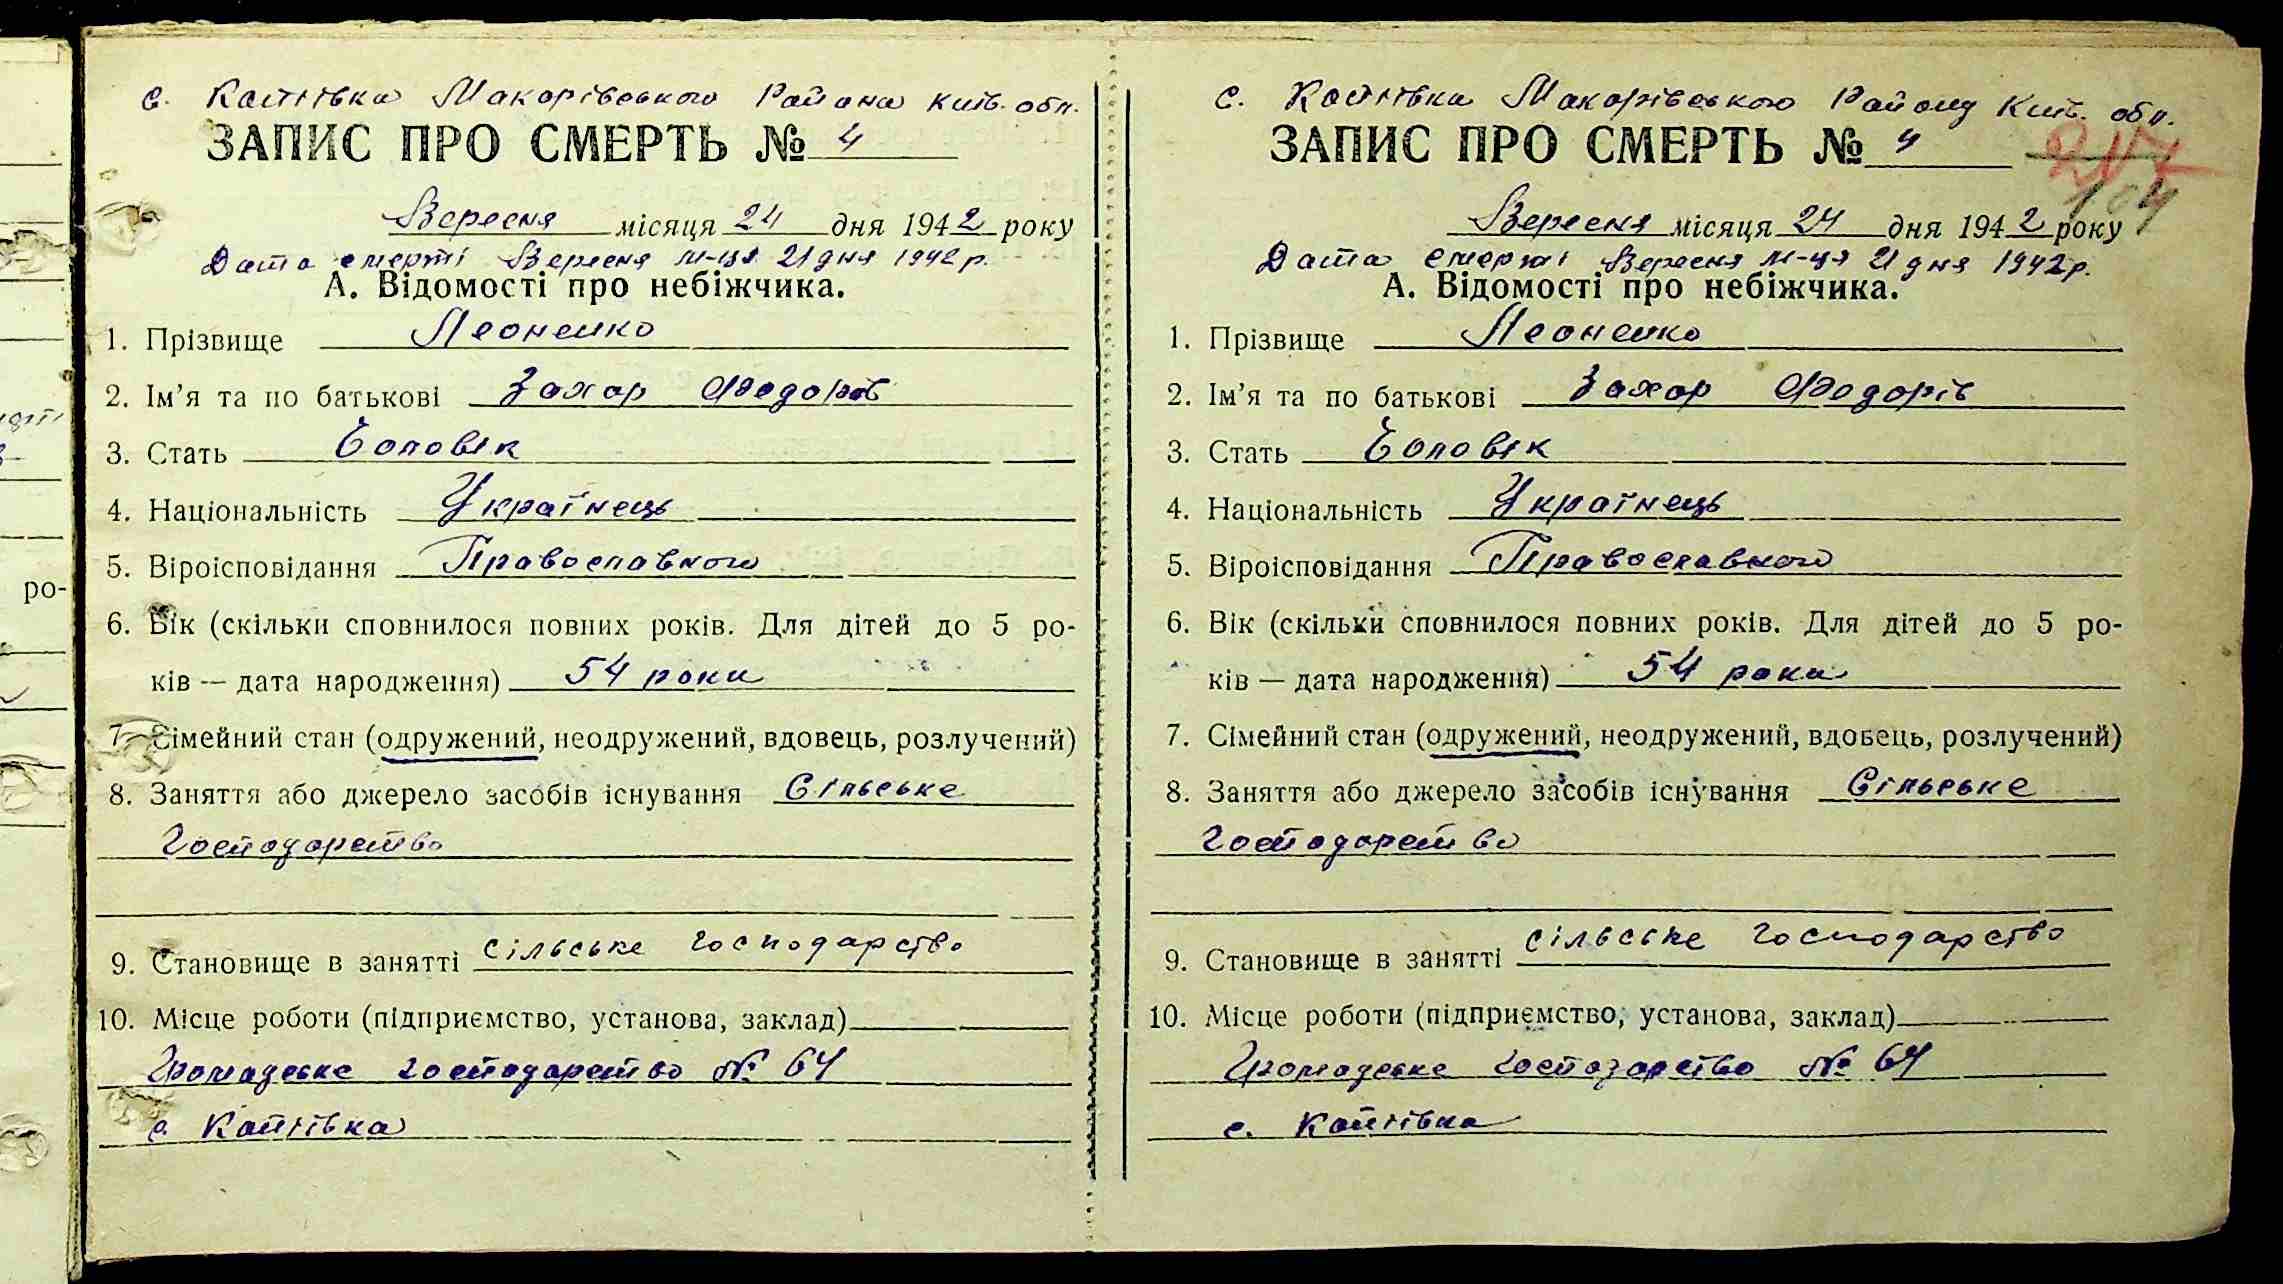 с. Каитівка Макарівського Района Київ. обл.
ЗАПИС ПРО СМЕРТЬ № 4
Вересня місяця 24 дня 1942 року
Дата смерті Вересня м-ця 21 дня 1942 р.
А. Відомості про небіжчика.
1. Прізвище Леоненко
2. Ім'я та по батькові Захар Федорів
3. Стать Чоловік
4. Національність Українець
5. Віроісповідання Православного
6. Вік (скільки сповнилося повних років. Для дітей до 5 ро-
ків — дата народження) 54 роки
7. Сімейний стан (одружений, неодружений, вдовець, розлучений)
8. Заняття або джерело засобів існування Сільське
Господарство
9. Становище в занятті сільське господарство
10. Місце роботи (підприємство, установа, заклад)
Громадське господарство № 64
с.
с. Макарівського Району Київ. обл.
ЗАПИС ПРО СМЕРТЬ № 4
217
104
Вересня місяця 24 дня 1942 року
Дата смерті Вересня м-ця 21 дня 1942 р.
А. Відомості про небіжчика.
1. Прізвище Леоненко
2. Ім'я та по батькові Захар Федорів
3. Стать Чоловік
4. Національність Українець
5. Віроісповідання Православного
6. Вік (скільки сповнилося повних років. Для дітей до 5 ро-
ків — дата народження) 54 роки
7. Сімейний стан (одружений, неодружений, вдовець, розлучений)
8. Заняття або джерело засобів існування Сільське
Господарство
9. Становище в занятті сільське господарство
10. Місце роботи (підприємство, установа, заклад)
Громадське господарство № 64
с.
ро-